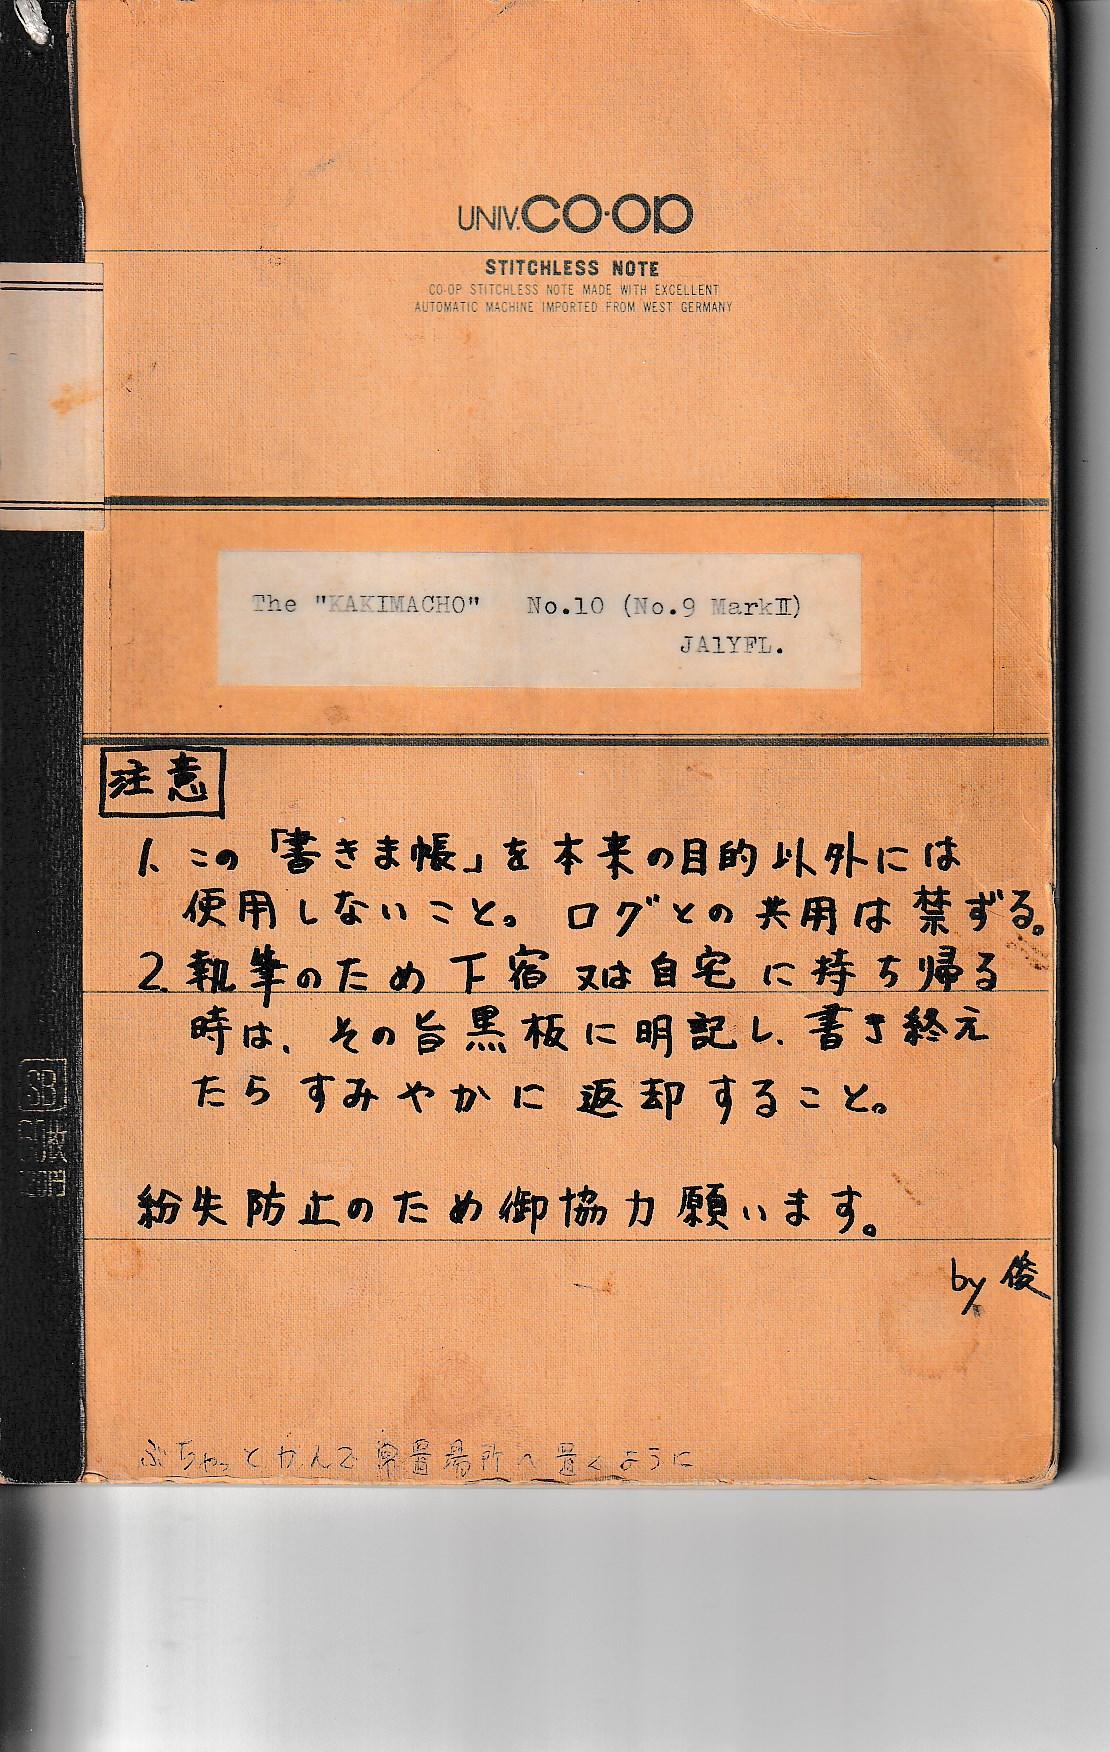 UNIV.CO·OP
STITCHLESS NOTE
CO-OP STITCHLESS NOTE MADE WITH EXCELLENT
AUTOMATIC MACHINE IMPORTED FROM WEST GERMANY
The "KAKIMACHO" No.10 (No.9 MarkⅡ)
JA1YFL.
注意
1. この「書きま帳」を本来の目的以外には
使用しないこと。ログとの共用は禁ずる。
2. 執筆のため下宿又は自宅に持ち帰る
時は、その旨黒板に明記し、書き終え
たらすみやかに返却すること。
紛失防止のため御協力願います。
by 俊
SB
枚
円
ぶちゃっとかんで常置場所へ置くように